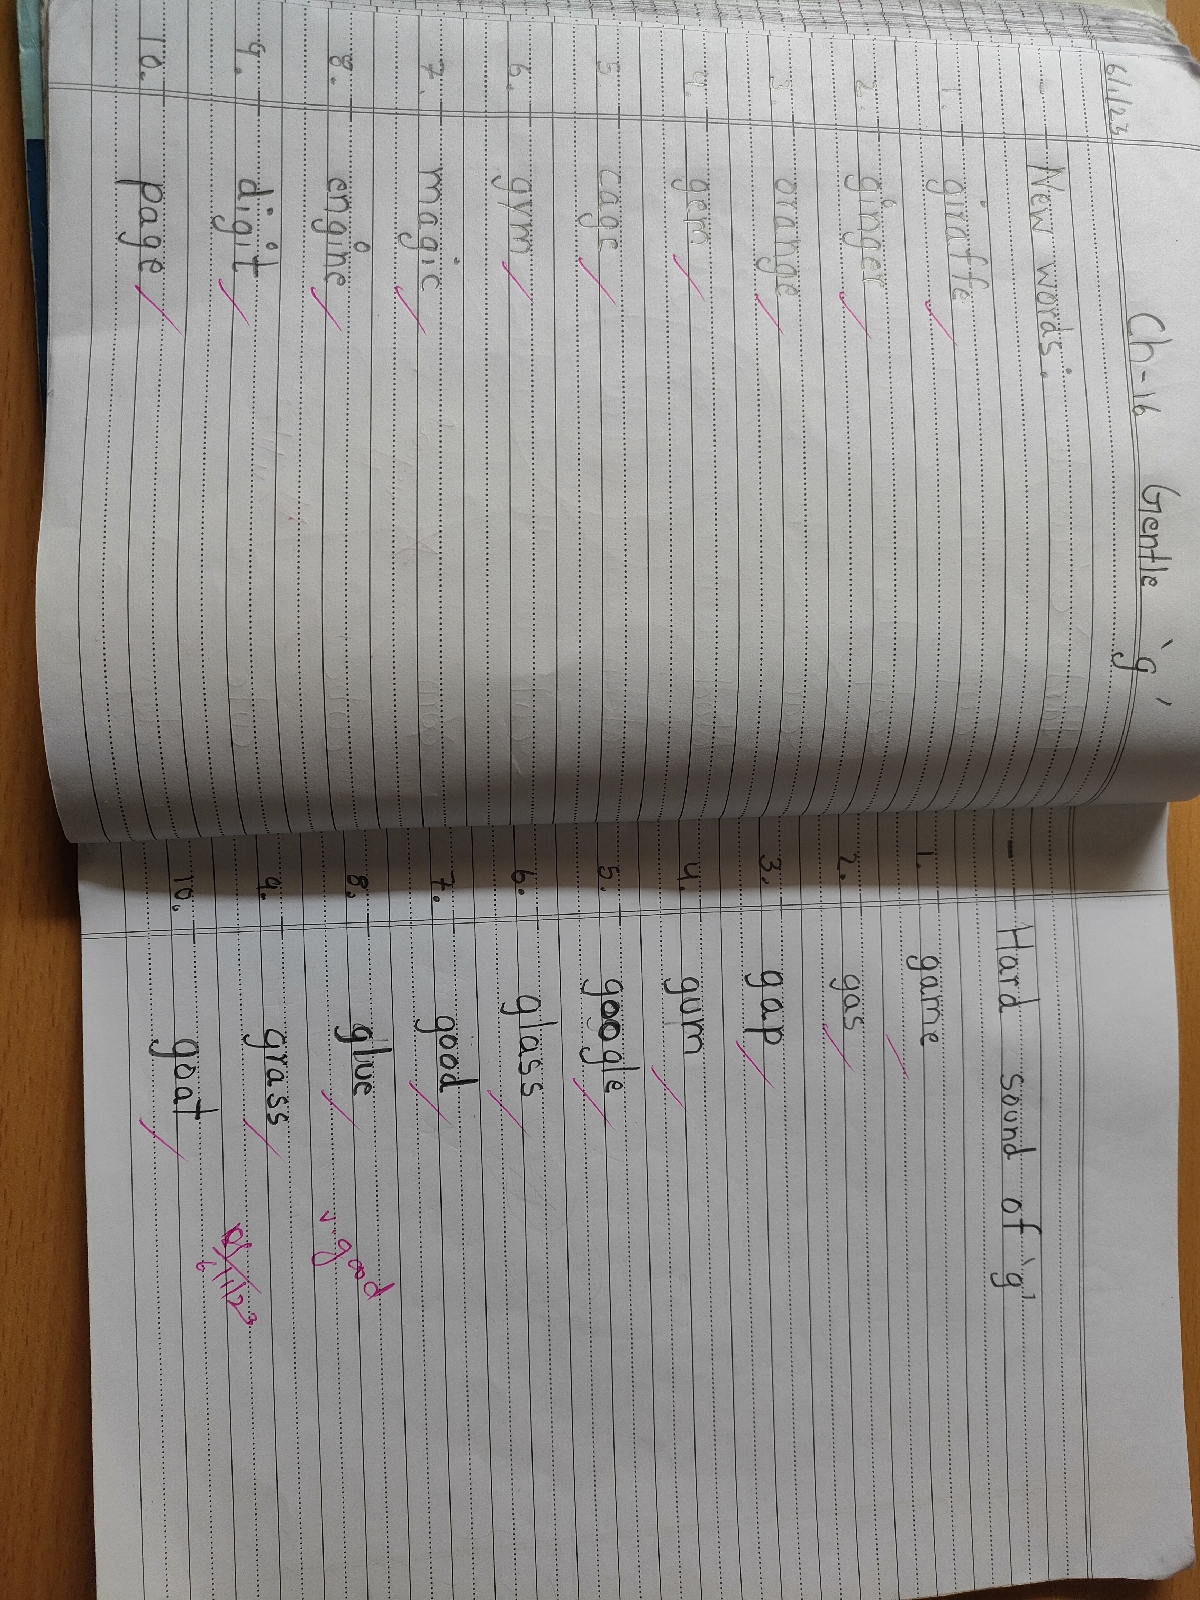 6/1/23
Ch-16 Gentle 'g'
- New words:
1. giraffe
2. ginger
3. orange
4. gem
5. cage
6. gym
7. magic
8. engine
9. digit
10. page
- Hard sound of 'g'
1. game
2. gas
3. gap
4. gum
5. google
6. glass
7. good
8. glue
9. grass
10. goat
v. good
6/1/23